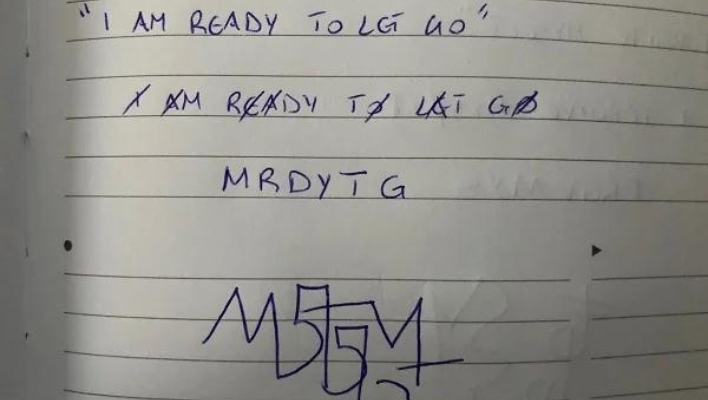 "I AM READY TO LET GO"
I AM READY TO LET GO
MRDYTG